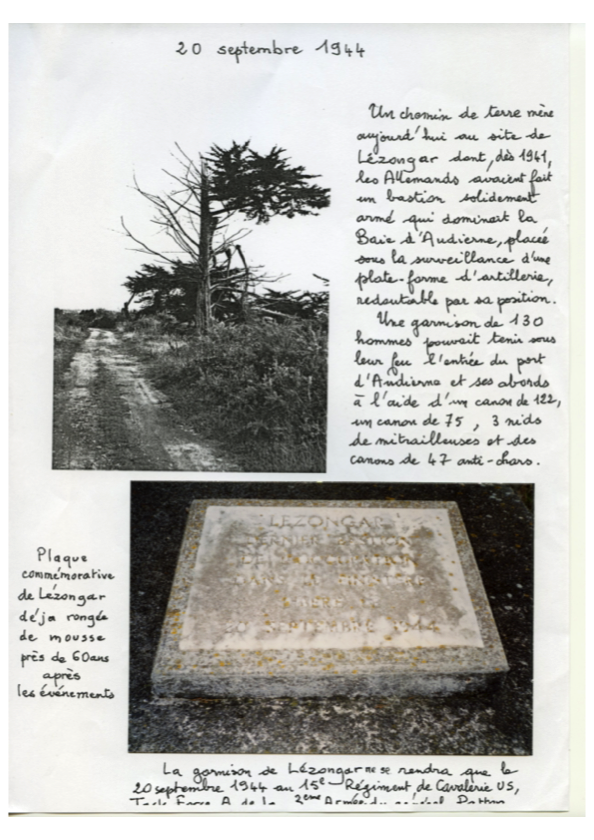 20 septembre 1944
Un chemin de terre mène
aujourd'hui au site de
Lézongar dont, dès 1941,
les Allemands avaient fait
un bastion solidement
armé qui dominait la
Baie d'Audierne, placée
sous la surveillance d'une
plate-forme d'artillerie,
redoutable par sa position.
Une garnison de 130
hommes pouvait tenir sous
leur feu l'entrée du port
d'Audierne et ses abords
à l'aide d'un canon de 122,
un canon de 75, 3 nids
de mitrailleuses et des
canons de 47 anti-chars.
LEZONGAR
DERNIER BASTION
DE L'OCCUPATION
DANS LE FINISTERE
LIBERE LE
20 SEPTEMBRE 1944
Plaque
commémorative
de Lézongar
déja rongée
de mousse
près de 60 ans
après
les événements
La garnison de Lézongar ne se rendra que le
20 septembre 1944 au 15e Régiment de Cavalerie US,
Task Force A de la 3ème Armée du général Patton